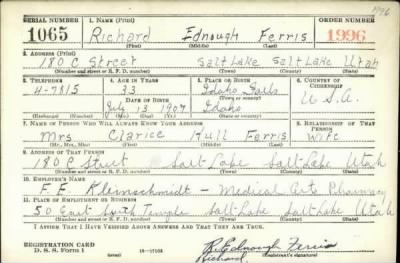 1996
SERIAL NUMBER 1. NAME (Print) ORDER NUMBER
1065 Richard Ednough Ferris 1996
(First) (Middle) (Last)
2. ADDRESS (Print)
180 C Street Salt Lake Salt Lake Utah
(Number and street or R. F. D. number) (Town) (County) (State)
3. TELEPHONE 4. AGE IN YEARS 5. PLACE OF BIRTH 6. COUNTRY OF CITIZENSHIP
4-7815 33 Idaho Falls
DATE OF BIRTH (Town or county)
July 13 1907 Idaho U.S.A.
(Exchange) (Number) (Mo.) (Day) (Yr.) (State or country)
7. NAME OF PERSON WHO WILL ALWAYS KNOW YOUR ADDRESS 8. RELATIONSHIP OF THAT PERSON
Mrs Clarice Hull Ferris Wife
(Mr., Mrs., Miss) (First) (Middle) (Last)
9. ADDRESS OF THAT PERSON
180 C Street Salt Lake Salt Lake Utah
(Number and street or R. F. D. number) (Town) (County) (State)
10. EMPLOYER'S NAME
F E Kleinschmidt - Medical Arts Pharmacy
11. PLACE OF EMPLOYMENT OR BUSINESS
50 East South Temple Salt Lake Salt Lake Utah
(Number and street or R. F. D. number) (Town) (County) (State)
I AFFIRM THAT I HAVE VERIFIED ABOVE ANSWERS AND THAT THEY ARE TRUE.
REGISTRATION CARD
D. S. S. Form 1 R. Ednough Ferris
Richard (Registrant's signature)